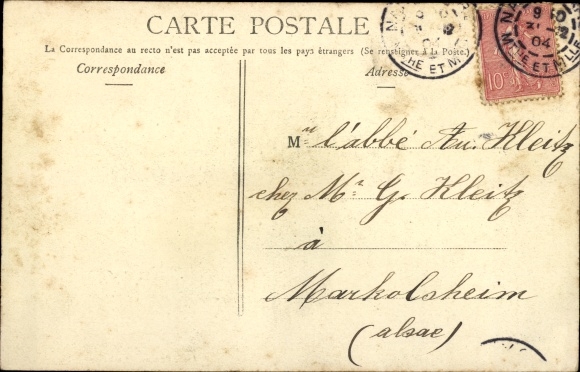 CARTE POSTALE
La Correspondance au recto n'est pas acceptée par tous les pays étrangers (Se renseigner à la Poste.)
Correspondance
Adresse
10
04
Mr l'abbé Au. Kleitz
chez Mr G. Kleitz
à
Markolsheim
(alsac)